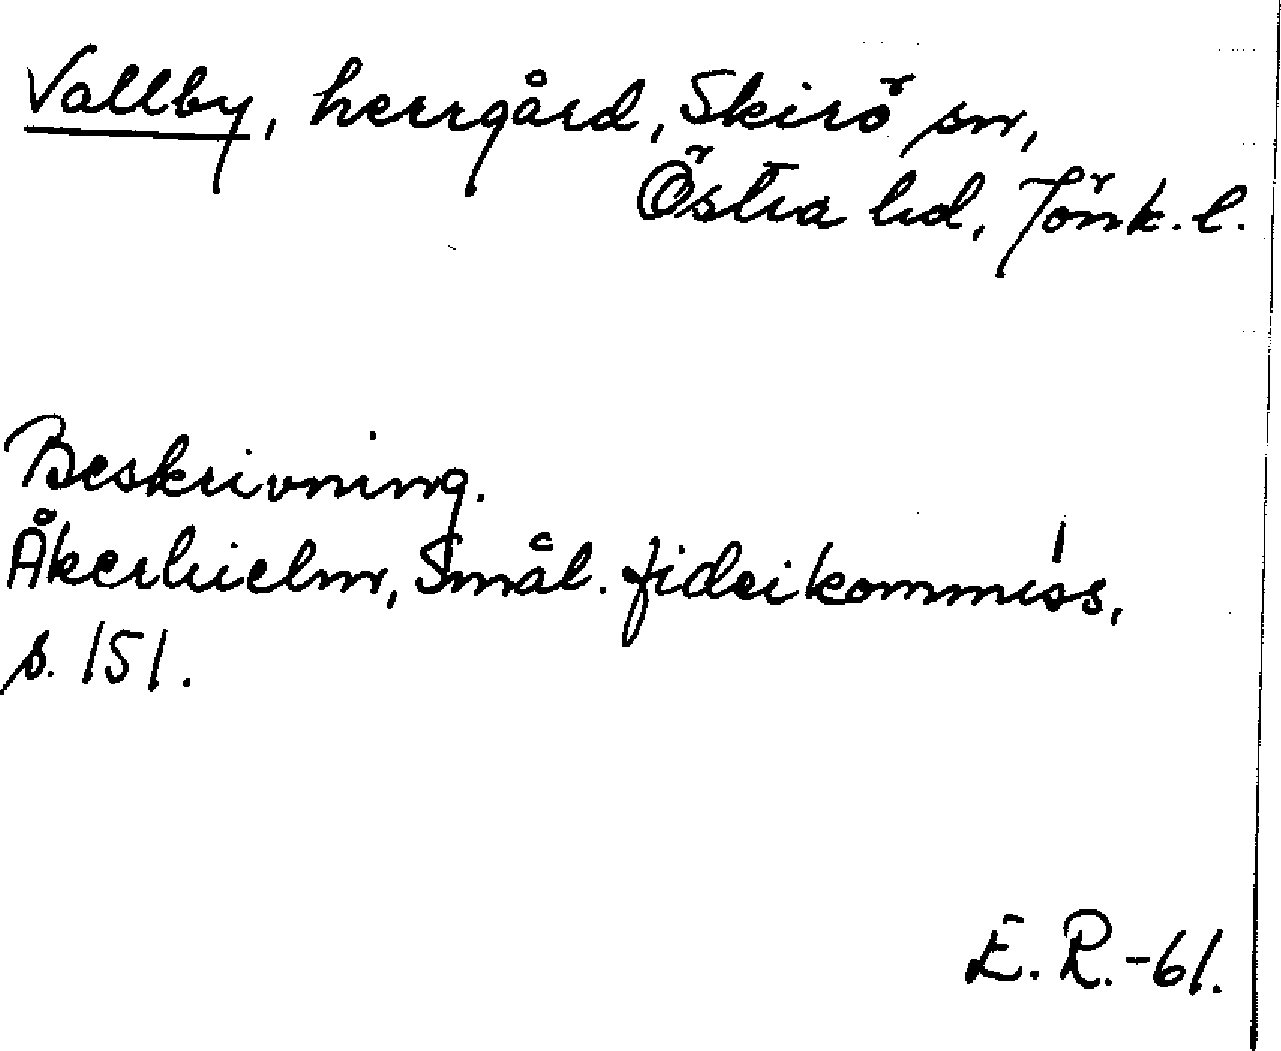 Vallby, herrgård, Skirö sn,
Östra hd, Jönk. l.
Beskrivning.
Åkerhielm, Smål. fideikommiss,
s. 151.
E. R. -61.